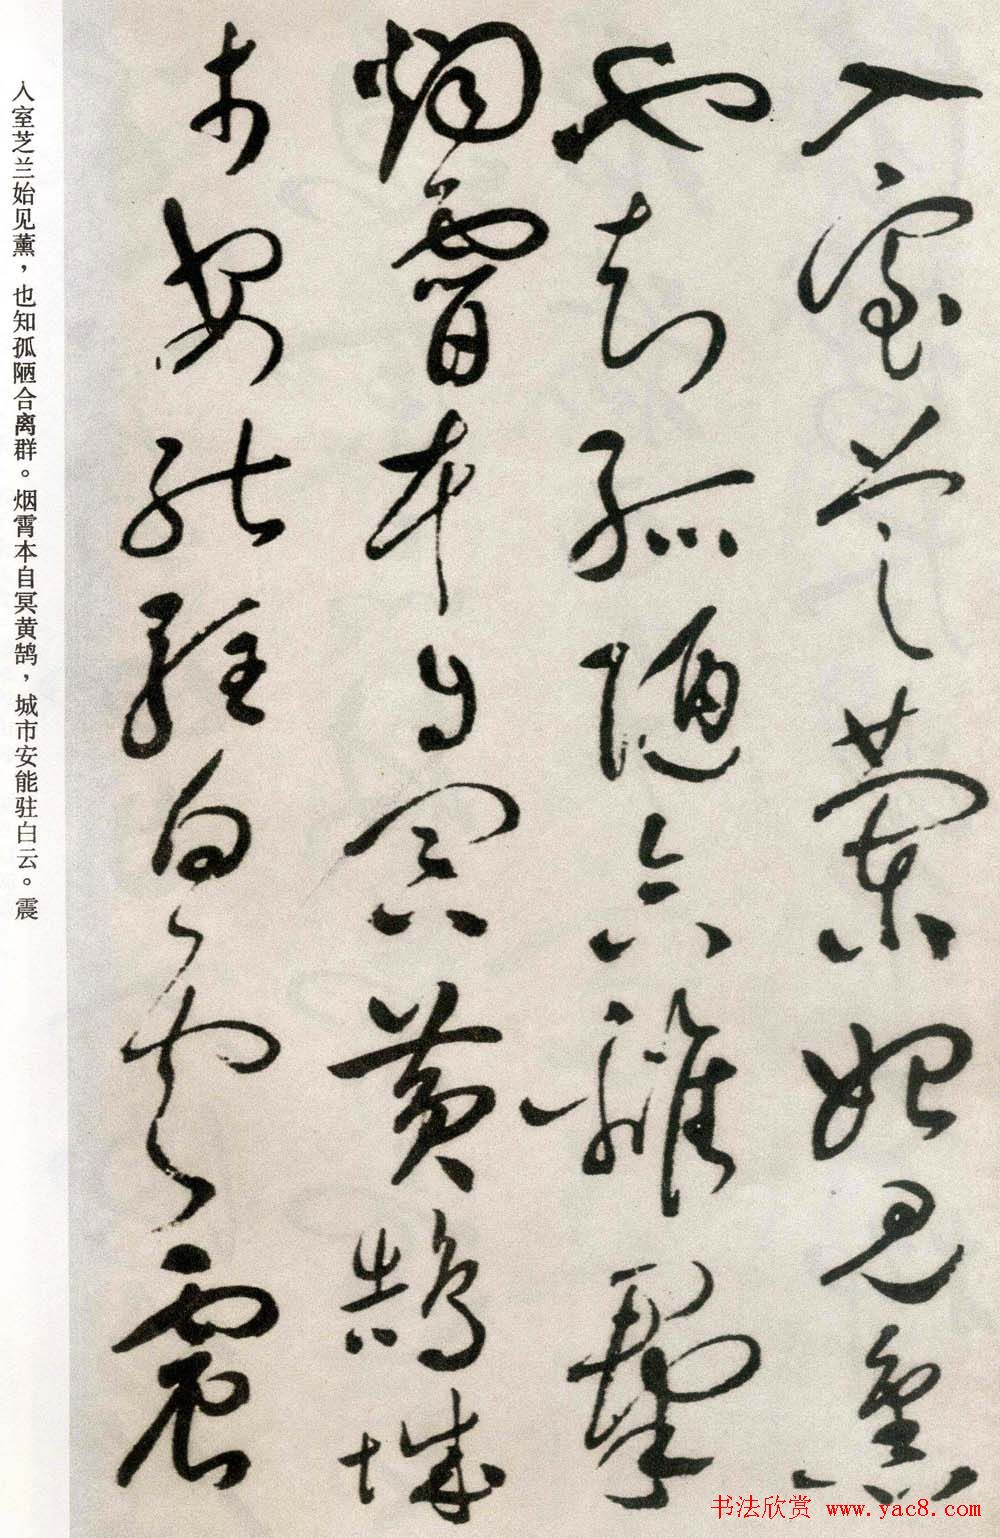 入室芝蘭始見薰
也知孤陋合離羣
烟霄本自冥黃鵠城
市安能駐白雲震
入室芝兰始见薰，也知孤陋合离群。烟霄本自冥黄鹄，城市安能驻白云。震
书法欣赏 www.yac8.com